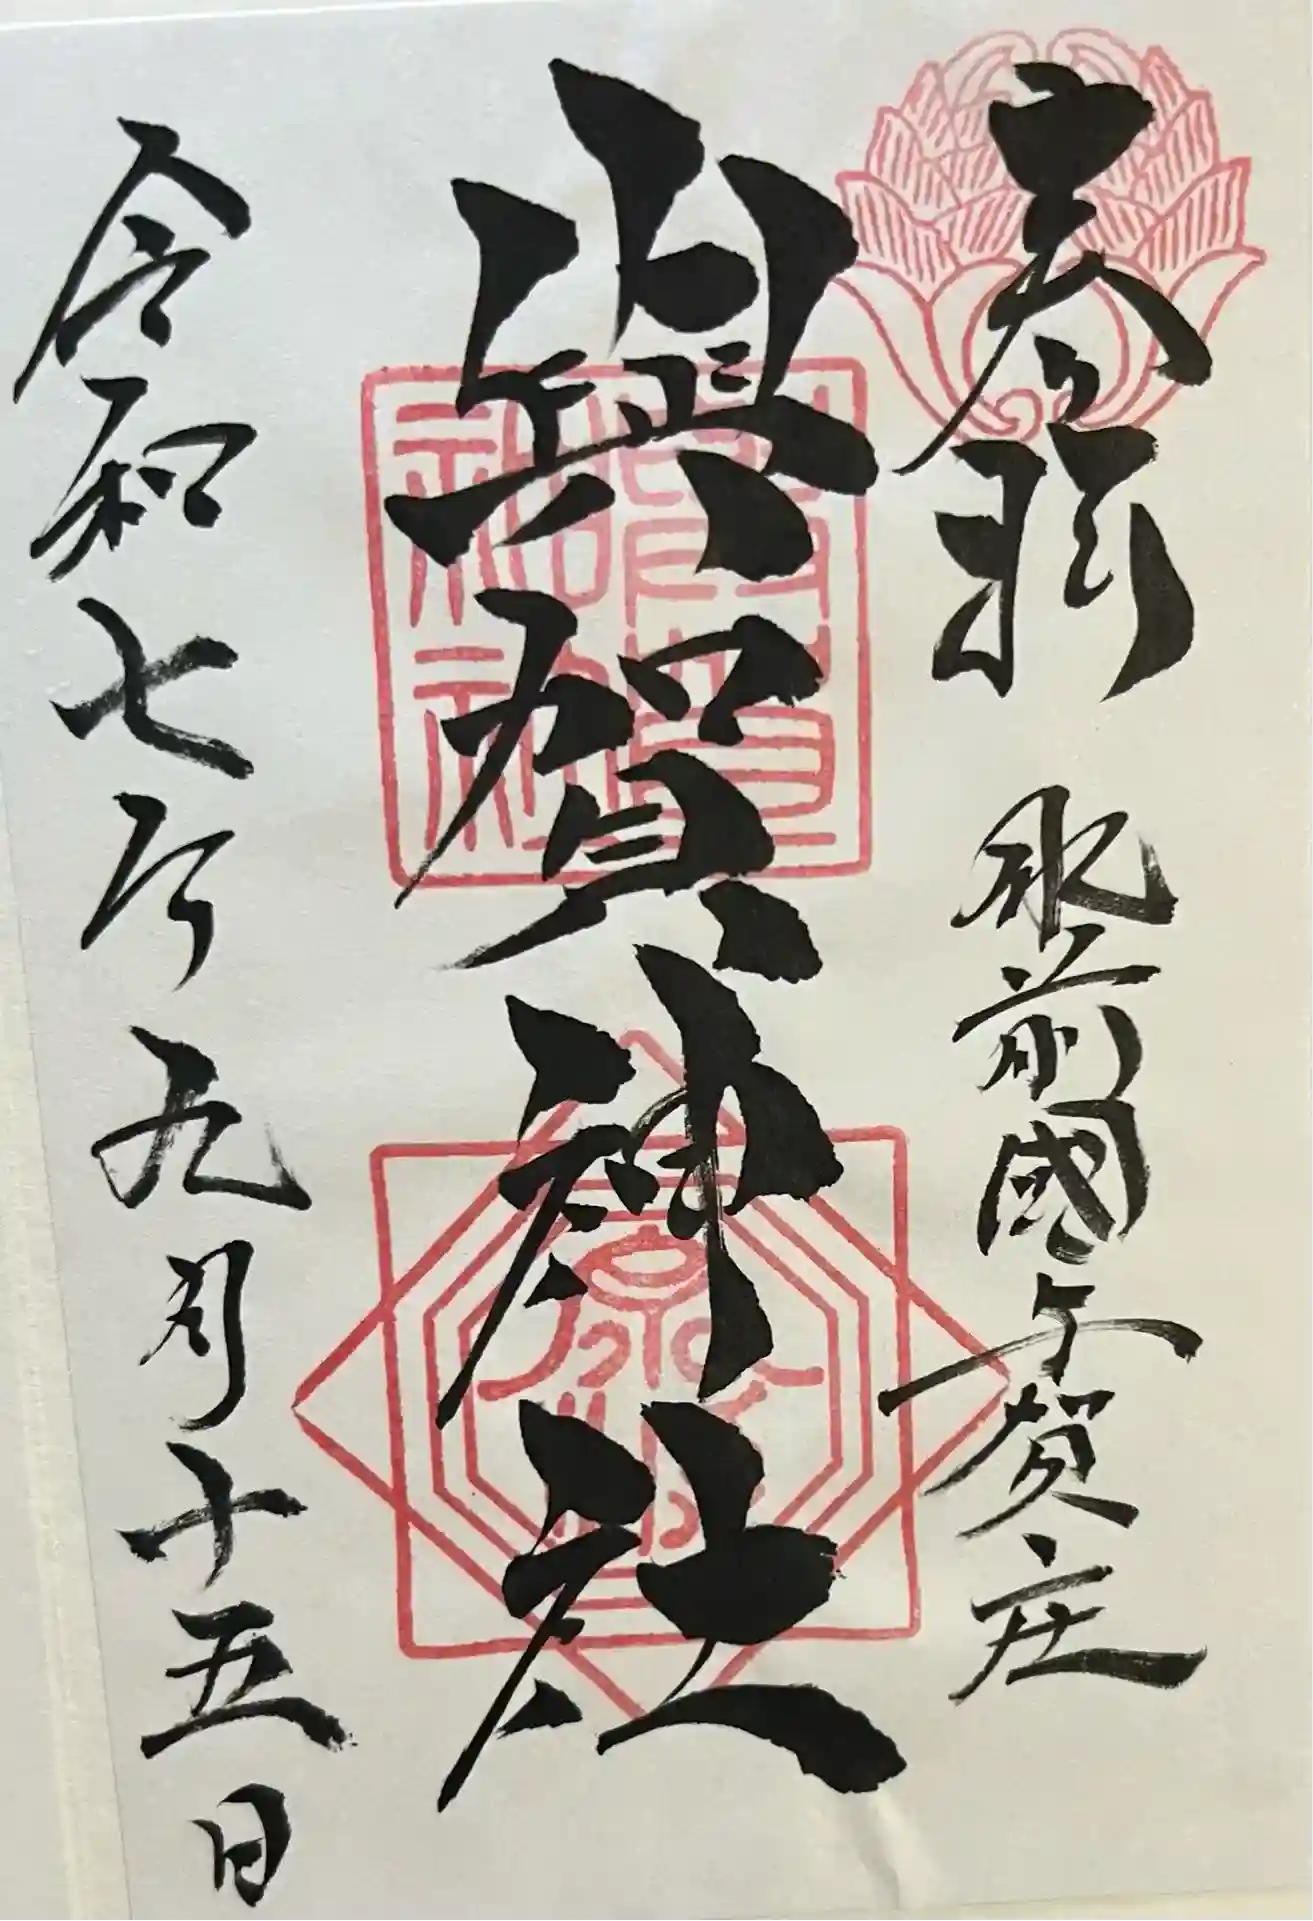 奉拝 肥前國与賀庄
與賀神社
令和七年九月十五日
與賀神社